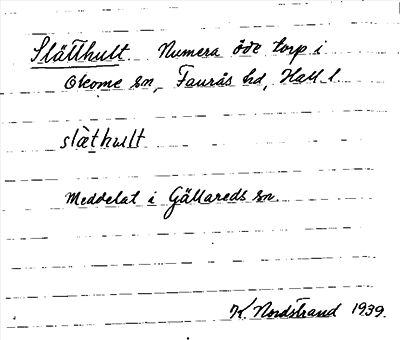 Slätthult Numera öde torp i
Okome sn, Faurås hd, Hall. l.
slàthult
Meddelat i Gällareds sn.
K. Nordstrand 1939.